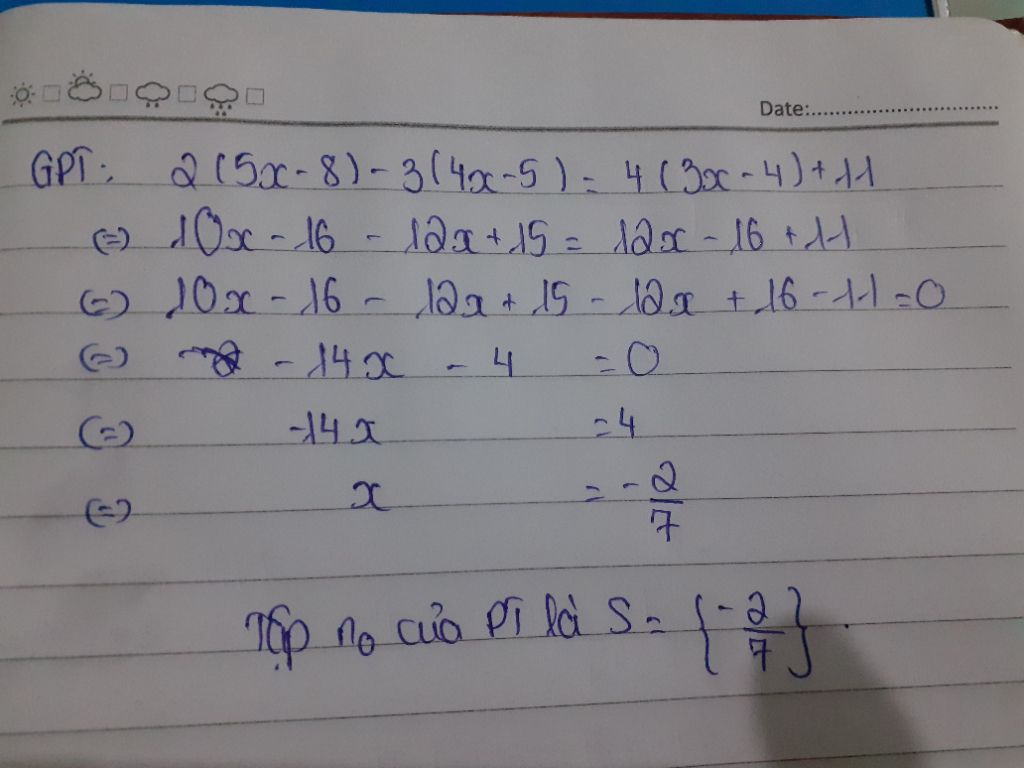 Date:
GPT: 2(5x-8)-3(4x-5)=4(3x-4)+11
(=) 10x-16-12x+15=12x-16+11
(=) 10x-16-12x+15-12x+16-11=0
(=) -14x-4=0
(=) -14x=4
(=) x=-2/7
Tập no của PT là S={-2/7}.